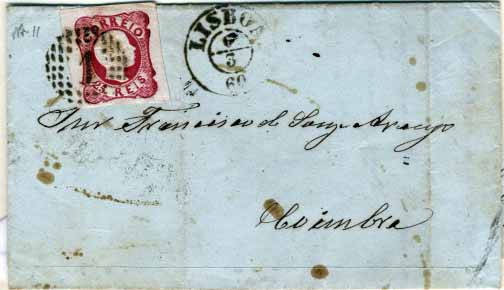 CORREIO
25 REIS
LISBOA
3
60
Francisco de Souza Araujo
Coimbra